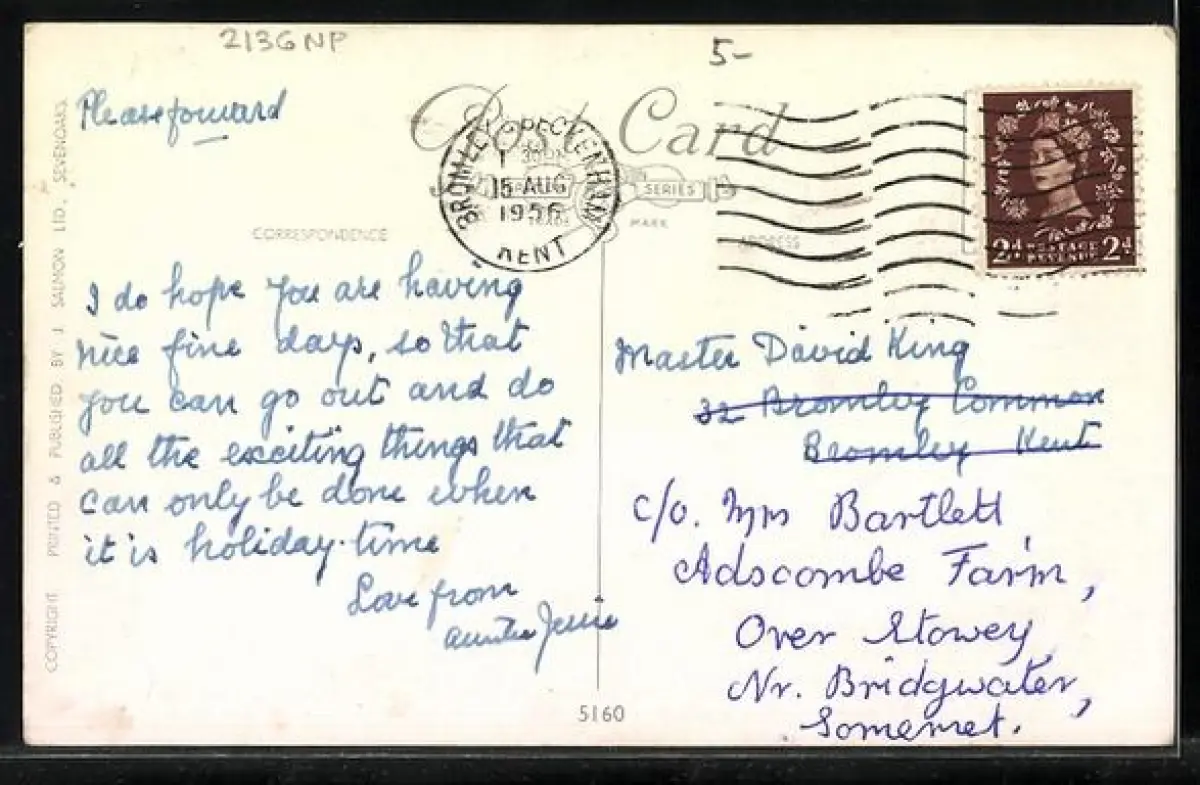 2136NP
5-
Please forward
Post Card
BROMLEY & BECKENHAM
15 AUG
1956
KENT
SERIES
MARK
CORRESPONDENCE
ADDRESS
2d POSTAGE REVENUE 2d
I do hope you are having
nice fine days, so that
you can go out and do
all the exciting things that
can only be done when
it is holiday-time
Love from
Auntie Jessie
Master David King
32 Bromley Common
Bromley Kent
c/o. Mrs Bartlett
Adscombe Farm,
Over Stowey
Nr. Bridgwater,
Somerset.
5160
COPYRIGHT PRINTED & PUBLISHED BY J. SALMON LTD., SEVENOAKS.